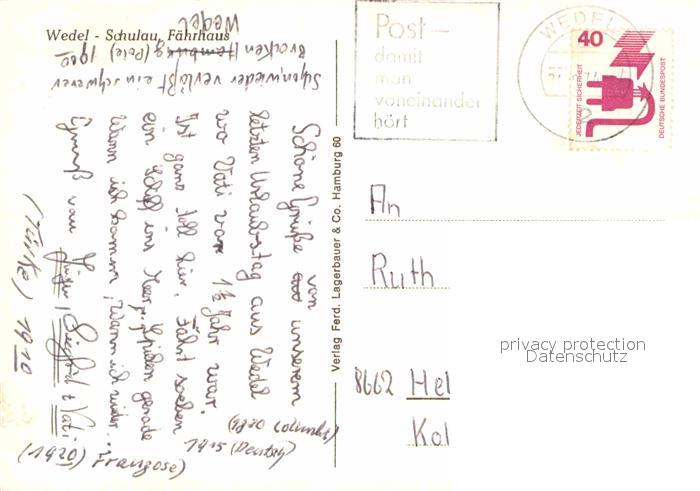 Wedel - Schulau, Fährhaus
Wedel
Schonwieder verläßt ein schwerer
Brocken Hamburg (Pole) 1900
Schöne Grüße von
unserem
letzten Urlaubstag aus Wedel
wo Vati vor 1½ Jahr war.
Ist ganz toll hier. Fährt soeben
ein Schiff ins Meer. Spielen gerade
Wenn ich komm, Wenn ich wider...
Gruß von Jürgen, Siegfried + Vati
(Türke) 1910
(1920) Franzose)
1915 (Deutsch)
(1920
Verlag Ferd. Lagerbauer & Co. Hamburg 60
Post-
damit
man
voneinander
hört
WEDEL
40
JEDERZEIT SICHERHEIT
DEUTSCHE BUNDESPOST
An
Ruth
privacy protection
Datenschutz
8662 Hel
Kol